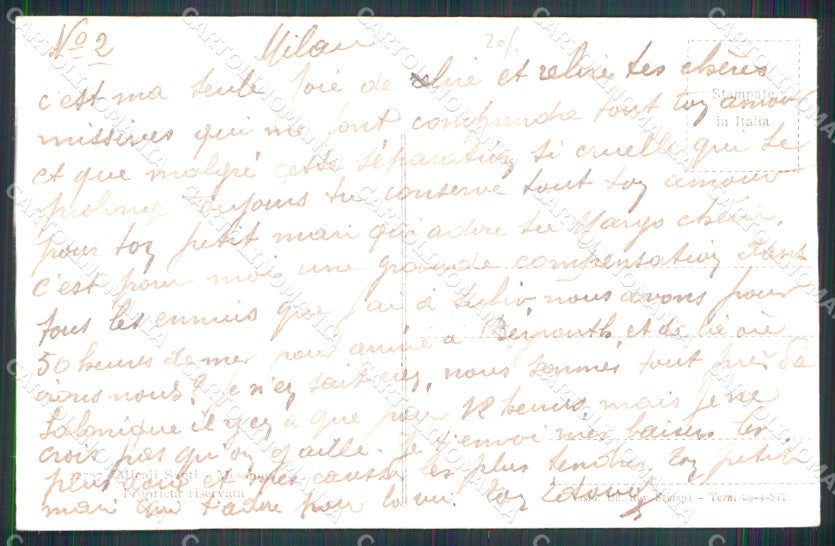 No 2 Milan 20/
c'est ma seule joie de relire et relire tes chères
missives qui me font comprendre tout toy amour
et que malgré cette séparation si cruelle qui se
prolong toujours tu conserve tout toy amour
pour toy petit mari qui adore sa Margo chérie,
c'est pour moi une grande compensation dans
tous les ennuis que j'ai à subir nous avons pour
50 heures de mer pour arrivé à Beyrouth, et de là où
irons nous? je n'ey sait rien, nous sommes tout près de
Salonique il y ey a que pour 12 heures, mais je ne
crois pas qu'oy y aille. Je t'envoi mes baisers les
plus doux et mes caresses les plus tendres toy petit
mari qui t'adore pour la vie. toy Edouard
Stampata
in Italia
Proprietà riservata
Terni 26-4-917
CARTOLINOMANIA